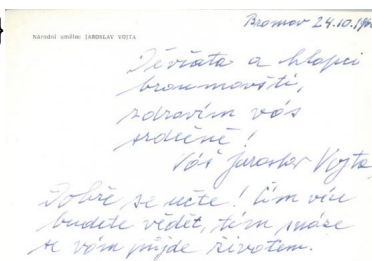 Bromov 24.10.
Národní umělec JAROSLAV VOJTA
Děvčata a hlapci
broumovští,
zdravím vás
srdečně!
Váš Jaroslav Vojta,
Dobře se učte! Čím více
budete vědět, tím snáze
se vám půjde životem.